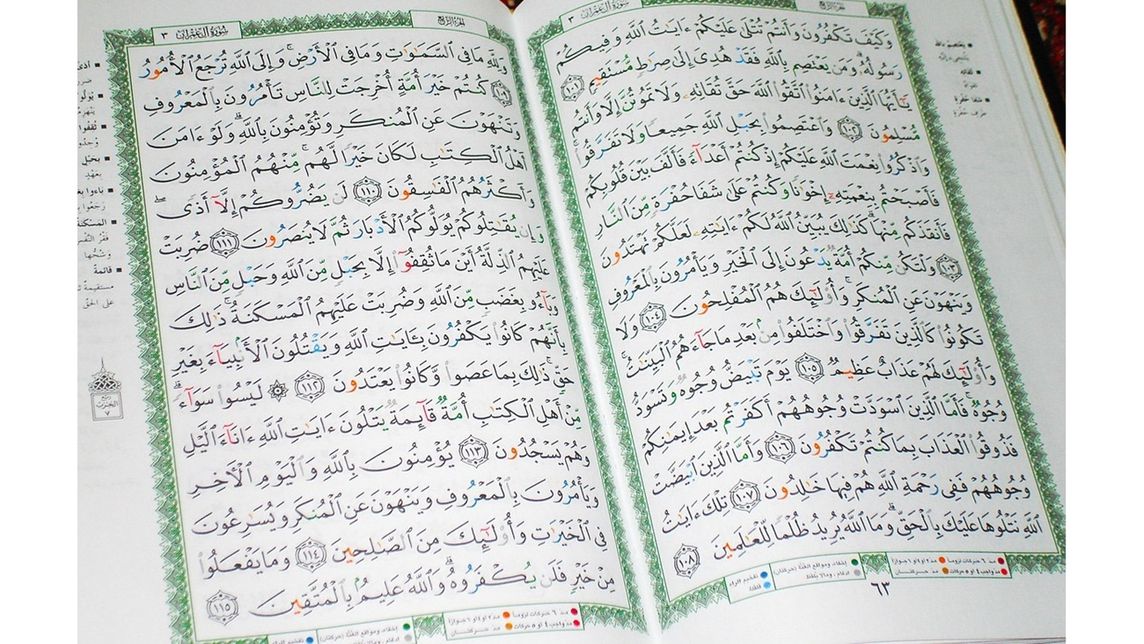 الجزء الرابع
سورة آل عمران ٣
وَكَيْفَ تَكْفُرُونَ وَأَنتُمْ تُتْلَىٰ عَلَيْكُمْ ءَايَٰتُ ٱللَّهِ وَفِيكُمْ
رَسُولُهُۥ وَمَن يَعْتَصِم بِٱللَّهِ فَقَدْ هُدِىَ إِلَىٰ صِرَٰطٍ مُّسْتَقِيمٍ ١٠١
يَٰٓأَيُّهَا ٱلَّذِينَ ءَامَنُوا۟ ٱتَّقُوا۟ ٱللَّهَ حَقَّ تُقَاتِهِۦ وَلَا تَمُوتُنَّ إِلَّا وَأَنتُم
مُّسْلِمُونَ ١٠٢ وَٱعْتَصِمُوا۟ بِحَبْلِ ٱللَّهِ جَمِيعًا وَلَا تَفَرَّقُوا۟ ۚ
وَٱذْكُرُوا۟ نِعْمَتَ ٱللَّهِ عَلَيْكُمْ إِذْ كُنتُمْ أَعْدَآءً فَأَلَّفَ بَيْنَ قُلُوبِكُمْ
فَأَصْبَحْتُم بِنِعْمَتِهِۦٓ إِخْوَٰنًا وَكُنتُمْ عَلَىٰ شَفَا حُفْرَةٍ مِّنَ ٱلنَّارِ
فَأَنقَذَكُم مِّنْهَا ۗ كَذَٰلِكَ يُبَيِّنُ ٱللَّهُ لَكُمْ ءَايَٰتِهِۦ لَعَلَّكُمْ تَهْتَدُونَ
١٠٣ وَلْتَكُن مِّنكُمْ أُمَّةٌ يَدْعُونَ إِلَى ٱلْخَيْرِ وَيَأْمُرُونَ بِٱلْمَعْرُوفِ
وَيَنْهَوْنَ عَنِ ٱلْمُنكَرِ ۚ وَأُو۟لَٰٓئِكَ هُمُ ٱلْمُفْلِحُونَ ١٠٤ وَلَا
تَكُونُوا۟ كَٱلَّذِينَ تَفَرَّقُوا۟ وَٱخْتَلَفُوا۟ مِنۢ بَعْدِ مَا جَآءَهُمُ ٱلْبَيِّنَٰتُ ۚ
وَأُو۟لَٰٓئِكَ لَهُمْ عَذَابٌ عَظِيمٌ ١٠٥ يَوْمَ تَبْيَضُّ وُجُوهٌ وَتَسْوَدُّ
وُجُوهٌ ۚ فَأَمَّا ٱلَّذِينَ ٱسْوَدَّتْ وُجُوهُهُمْ أَكَفَرْتُم بَعْدَ إِيمَٰنِكُمْ
فَذُوقُوا۟ ٱلْعَذَابَ بِمَا كُنتُمْ تَكْفُرُونَ ١٠٦ وَأَمَّا ٱلَّذِينَ ٱبْيَضَّتْ
وُجُوهُهُمْ فَفِى رَحْمَةِ ٱللَّهِ هُمْ فِيهَا خَٰلِدُونَ ١٠٧ تِلْكَ ءَايَٰتُ
ٱللَّهِ نَتْلُوهَا عَلَيْكَ بِٱلْحَقِّ ۗ وَمَا ٱللَّهُ يُرِيدُ ظُلْمًا لِّلْعَٰلَمِينَ ١٠٨
٦٣
■ يعتصم بالله
يلتجئ إليه
■ تقاته
تقواه
■ شفا حفرة
طرف حفرة
الجزء الرابع
سورة آل عمران ٣
وَلِلَّهِ مَا فِى ٱلسَّمَٰوَٰتِ وَمَا فِى ٱلْأَرْضِ ۚ وَإِلَى ٱللَّهِ تُرْجَعُ ٱلْأُمُورُ
١٠٩ كُنتُمْ خَيْرَ أُمَّةٍ أُخْرِجَتْ لِلنَّاسِ تَأْمُرُونَ بِٱلْمَعْرُوفِ
وَتَنْهَوْنَ عَنِ ٱلْمُنكَرِ وَتُؤْمِنُونَ بِٱللَّهِ ۗ وَلَوْ ءَامَنَ
أَهْلُ ٱلْكِتَٰبِ لَكَانَ خَيْرًا لَّهُم ۚ مِّنْهُمُ ٱلْمُؤْمِنُونَ
وَأَكْثَرُهُمُ ٱلْفَٰسِقُونَ ١١٠ لَن يَضُرُّوكُمْ إِلَّآ أَذًى ۖ
وَإِن يُقَٰتِلُوكُمْ يُوَلُّوكُمُ ٱلْأَدْبَارَ ثُمَّ لَا يُنصَرُونَ ١١١ ضُرِبَتْ
عَلَيْهِمُ ٱلذِّلَّةُ أَيْنَ مَا ثُقِفُوٓا۟ إِلَّا بِحَبْلٍ مِّنَ ٱللَّهِ وَحَبْلٍ مِّنَ ٱلنَّاسِ
وَبَآءُو بِغَضَبٍ مِّنَ ٱللَّهِ وَضُرِبَتْ عَلَيْهِمُ ٱلْمَسْكَنَةُ ۚ ذَٰلِكَ
بِأَنَّهُمْ كَانُوا۟ يَكْفُرُونَ بِـَٔايَٰتِ ٱللَّهِ وَيَقْتُلُونَ ٱلْأَنۢبِيَآءَ بِغَيْرِ
حَقٍّ ۚ ذَٰلِكَ بِمَا عَصَوا۟ وَّكَانُوا۟ يَعْتَدُونَ ١١٢ ۞ لَيْسُوا۟ سَوَآءً ۗ
مِّنْ أَهْلِ ٱلْكِتَٰبِ أُمَّةٌ قَآئِمَةٌ يَتْلُونَ ءَايَٰتِ ٱللَّهِ ءَانَآءَ ٱلَّيْلِ
وَهُمْ يَسْجُدُونَ ١١٣ يُؤْمِنُونَ بِٱللَّهِ وَٱلْيَوْمِ ٱلْءَاخِرِ
وَيَأْمُرُونَ بِٱلْمَعْرُوفِ وَيَنْهَوْنَ عَنِ ٱلْمُنكَرِ وَيُسَٰرِعُونَ
فِى ٱلْخَيْرَٰتِ وَأُو۟لَٰٓئِكَ مِنَ ٱلصَّٰلِحِينَ ١١٤ وَمَا يَفْعَلُوا۟
مِنْ خَيْرٍ فَلَن يُكْفَرُوهُ ۗ وَٱللَّهُ عَلِيمٌۢ بِٱلْمُتَّقِينَ ١١٥
ربع
الحزب
٧